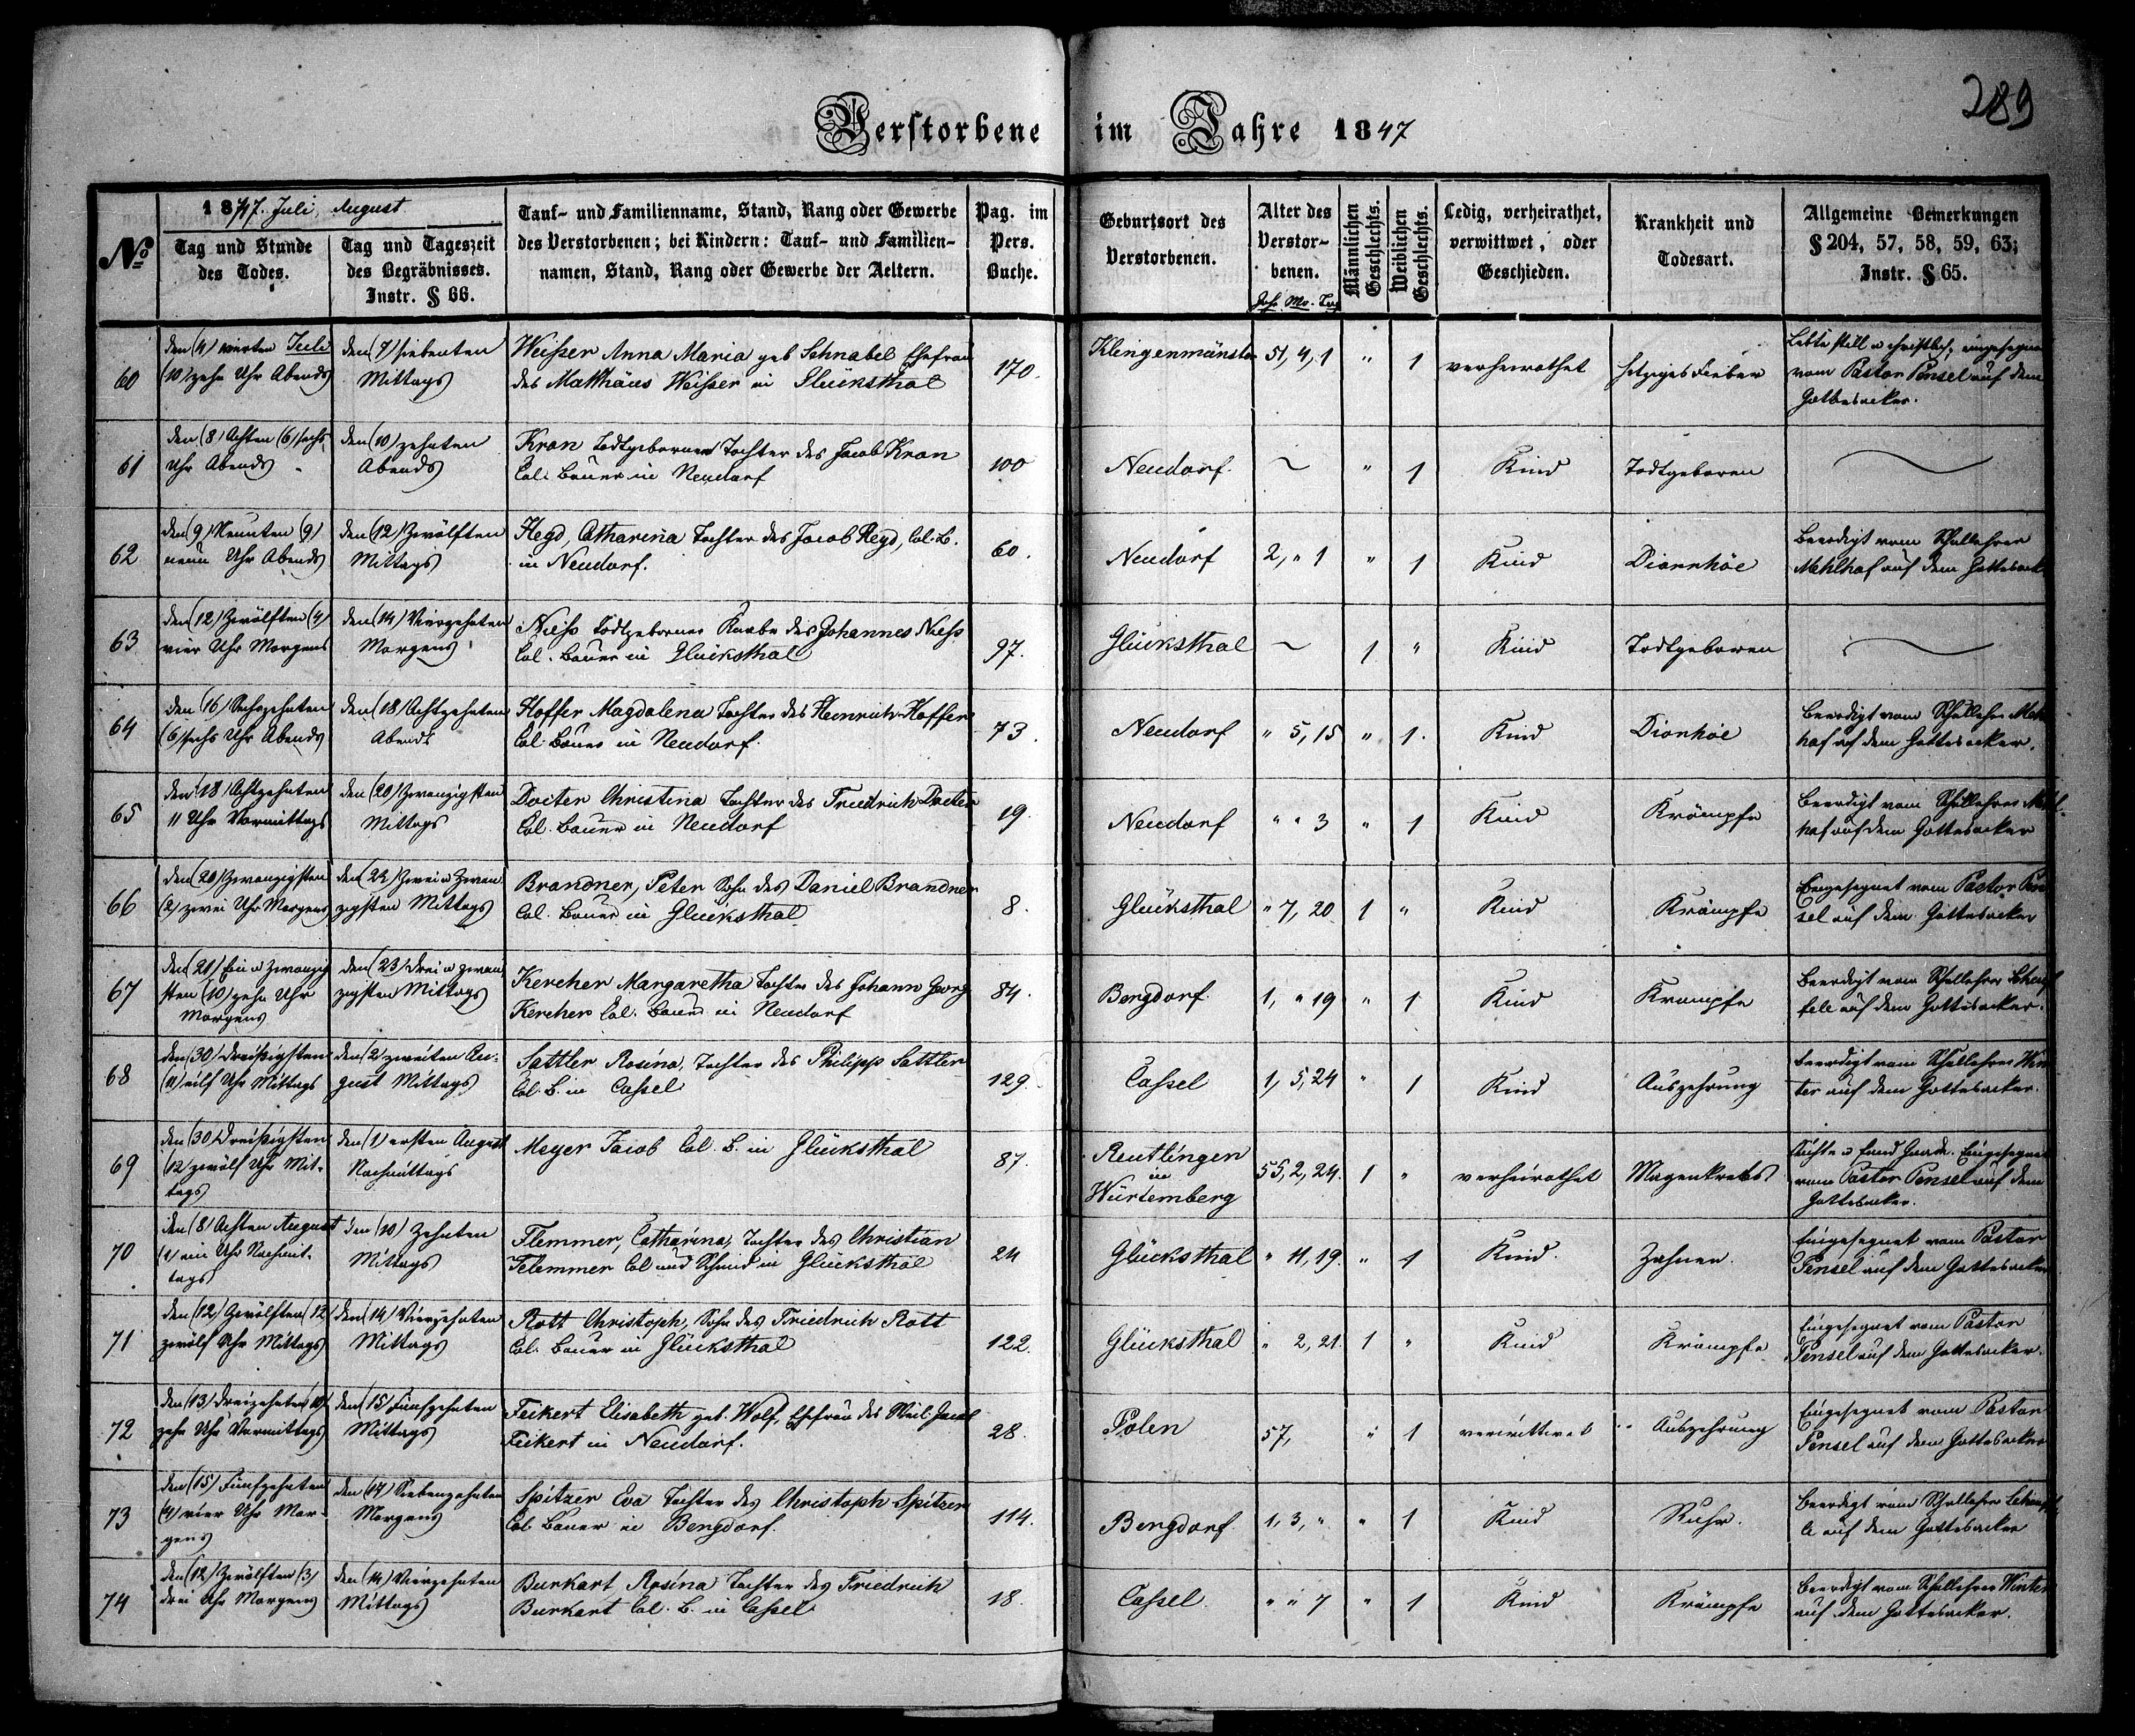 289
Verstorbene im Jahre 1847
1847. Juli, August
No
Tag und Stunde
des Todes.
Tag und Tageszeit
des Begräbnisses.
Instr. § 66.
Tauf- und Familienname, Stand, Rang oder Gewerbe
des Verstorbenen; bei Kindern: Tauf- und Familien-
namen, Stand, Rang oder Gewerbe der Aeltern.
Pag. im
Pers.
Buche.
Geburtsort des
Verstorbenen.
Alter des
Verstor-
benen.
Jah. Mo. Tag
Männlichen
Geschlechts.
Weiblichen
Geschlechts.
Ledig, verheirathet,
verwittwet, oder
Geschieden.
Krankheit und
Todesart.
Allgemeine Bemerkungen
§ 204, 57, 58, 59, 63;
Instr. § 65.
60
den (4) vierten Juli
(10) zehn Uhr Abends
den (7) siebenten
Mittags
Weißer Anna Maria geb Schnabel Ehefrau
des Matthäus Weißer in Glücksthal
170.
Klingenmünster
51, 4, 1
"
1
verheirathet
hitziges Fieber
Lebte still u christlich, eingesegnet
vom Pastor Pensel auf dem
Gottesacker.
61
den (8) Achten (6) sechs
Uhr Abends
den (10) zehnten
Abends
Kron todtgeborne Tochter des Jacob Kron
Col. Bauer in Neudorf
100
Neudorf.
~
"
1
Kind
Todtgeboren
62
den (9) Neunten (9)
neun Uhr Abends
den (12) Zwölften
Mittags
Hegd, Catharina Tochter des Jacob Hegd, Col. B.
in Neudorf.
60.
Neudorf
2, " 1
"
1
Kind
Diarrhöe
Beerdigt vom Schullehrer
Mehlhaf auf dem Gottesack
63
den (12) Zwölften (4)
vier Uhr Morgens
den (14) Vierzehnten
Morgens
Nieß todtgeborner Knabe des Johannes Nieß
Col. Bauer in Glücksthal
97.
Glücksthal
~
1
"
Kind
Todtgeboren
64
den (16) Sechszehnten
(6) sechs Uhr Abends
den (18) Achtzehnten
Abends
Hoffer Magdalena Tochter des Heinrich Hoffer
Col. Bauer in Neudorf.
73.
Neudorf
" 5, 15
"
1.
Kind
Diarrhöe
Beerdigt vom Schullehrer Mehl
haf auf dem Gottesacker.
65
den (18) Achtzehnten
11 Uhr Vormittags
den (20) Zwanzigsten
Mittags
Docter Christina Tochter des Friedrich Docter
Col. Bauer in Neudorf
19.
Neudorf
" " 3
"
1
Kind
Krämpfe
Beerdigt vom Schullehrer Mehl-
haf auf dem Gottesacker
66
den (20) Zwanzigsten
(2) zwei Uhr Morgens
den (22) Zwei u Zwan
zigsten Mittags
Brandner, Peter Sohn des Daniel Brandner
Col. Bauer in Glücksthal
8.
Glücksthal
" 7, 20
1
"
Kind
Krämpfe
Eingesegnet vom Pastor Pen
sel auf dem Gottesacker
67
den (21) Ein u Zwanzig
sten (10) zehn Uhr
Morgens
den (23) Drei u zwan
zigsten Mittags
Kercher Margaretha Tochter des Johann Georg
Kercher Col. Bauer in Neudorf
84.
Bergdorf.
1, " 19
"
1
Kind
Krampfe
Beerdigt vom Schullehrer
auf dem Gottesacker.
68
den (30) Dreißigsten
(11) eilf Uhr Mittags
den (2) zweiten Au-
gust Mittags
Sattler Rosina, Tochter des Philipp Sattler
Col. B. in Cassel
129.
Cassel
1, 5, 24
"
1
Kind
Auszehrung
beerdigt vom Schullehrer Win
ter auf dem Gottesacker.
69
den (30) Dreißigsten
(12) zwölf Uhr Mit-
tags
den (1) ersten August
Nachmittags
Meyer Jacob Col. B. in Glücksthal
87.
Reutlingen
in
Würtemberg
55, 2, 24.
1
"
verheirathet
Magenkrebs
Suchte u fand Gnade. Eingesegnet
vom Pastor Pensel auf dem
Gottesacker.
70
den (8) Achten August
(1) ein Uhr Nachmit-
tags
den (10) Zehnten
Mittags
Flemmer, Catharina, Tochter des Christian
Flemmer Col und Schmid in Glücksthal
24
Glücksthal
" 11, 19.
"
1
Kind.
Zahnen.
Eingesegnet vom Pastor
Pensel auf dem Gottesacker
71
den (12) Zwölften (12)
zwölf Uhr Mittags
den (14) Vierzehnten
Mittags
Rott Christoph, Sohn des Friedrich Rott
Col. Bauer in Glücksthal
122.
Glücksthal
" 2, 21
1
"
Kind
Krämpfe
Eingesegnet vom Pastor
Pensel auf dem Gottesacker.
72
den (13) Dreizehnten (10)
zehn Uhr Vormittags
den (15) Fünfzehnten
Mittags
Feikert Elisabeth geb. Wolf, Ehefrau des Weil. Jacob
Feikert in Neudorf.
28.
Polen
57,
"
1
verwittwet
Auszehrung
Eingesegnet vom Pastor
Pensel auf dem Gottesacker
73
den (15) Fünfzehnten
(4) vier Uhr Mor-
gens
den (17) Siebenzehnten
Morgens
Spitzer Eva Tochter des Christoph Spitzer
Col. Bauer in Bergdorf.
114.
Bergdorf.
1, 3, "
"
1
Kind
Ruhr.
Beerdigt vom Schullehrer
auf dem Gottesacker
74
den (12) Zwölften (3)
drei Uhr Morgens
den (14) Vierzehnten
Mittags
Burkart Rosina Tochter des Friedrich
Burkart Col. B. in Cassel
18.
Cassel.
" " 7
"
1
Kind
Krämpfe
Beerdigt vom Schullehrer Winter
auf dem Gottesacker.